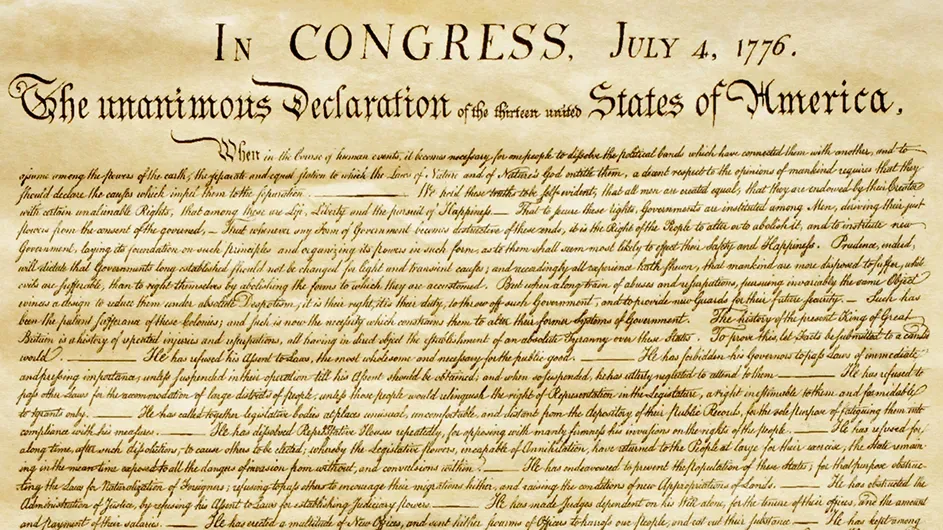 In CONGRESS, July 4, 1776.
The unanimous Declaration of the thirteen united States of America,
When in the Course of human events, it becomes necessary for one people to dissolve the political bands which have connected them with another, and to
assume among the powers of the earth, the separate and equal station to which the Laws of Nature and of Nature's God entitle them, a decent respect to the opinions of mankind requires that they
should declare the causes which impel them to the separation. ——— We hold these truths to be self-evident, that all men are created equal, that they are endowed by their Creator
with certain unalienable Rights, that among these are Life, Liberty and the pursuit of Happiness.— That to secure these rights, Governments are instituted among Men, deriving their just
powers from the consent of the governed,— That whenever any Form of Government becomes destructive of these ends, it is the Right of the People to alter or to abolish it, and to institute new
Government, laying its foundation on such principles and organizing its powers in such form, as to them shall seem most likely to effect their Safety and Happiness. Prudence, indeed,
will dictate that Governments long established should not be changed for light and transient causes; and accordingly all experience hath shewn, that mankind are more disposed to suffer, while
evils are sufferable, than to right themselves by abolishing the forms to which they are accustomed. But when a long train of abuses and usurpations, pursuing invariably the same Object
evinces a design to reduce them under absolute Despotism, it is their right, it is their duty, to throw off such Government, and to provide new Guards for their future security.— Such has
been the patient sufferance of these Colonies; and such is now the necessity which constrains them to alter their former Systems of Government. The history of the present King of Great
Britain is a history of repeated injuries and usurpations, all having in direct object the establishment of an absolute Tyranny over these States. To prove this, let Facts be submitted to a candid
world. ——— He has refused his Assent to Laws, the most wholesome and necessary for the public good. ——— He has forbidden his Governors to pass Laws of immediate
and pressing importance, unless suspended in their operation till his Assent should be obtained; and when so suspended, he has utterly neglected to attend to them. ——— He has refused to
pass other Laws for the accommodation of large districts of people, unless those people would relinquish the right of Representation in the Legislature, a right inestimable to them and formidable
to tyrants only. ——— He has called together legislative bodies at places unusual, uncomfortable, and distant from the depository of their Public Records, for the sole purpose of fatiguing them into
compliance with his measures. ——— He has dissolved Representative Houses repeatedly, for opposing with manly firmness his invasions on the rights of the people. ——— He has refused for
a long time, after such dissolutions, to cause others to be elected; whereby the Legislative powers, incapable of Annihilation, have returned to the People at large for their exercise; the State remain-
ing in the mean time exposed to all the dangers of invasion from without, and convulsions within. ——— He has endeavoured to prevent the population of these States; for that purpose obstruc-
ting the Laws for Naturalization of Foreigners; refusing to pass others to encourage their migrations hither, and raising the conditions of new Appropriations of Lands. ——— He has obstructed the
Administration of Justice, by refusing his Assent to Laws for establishing Judiciary powers. ——— He has made Judges dependent on his Will alone, for the tenure of their offices, and the amount
and payment of their salaries. ——— He has erected a multitude of New Offices, and sent hither swarms of Officers to harrass our people, and eat out their substance. ——— He has kept among